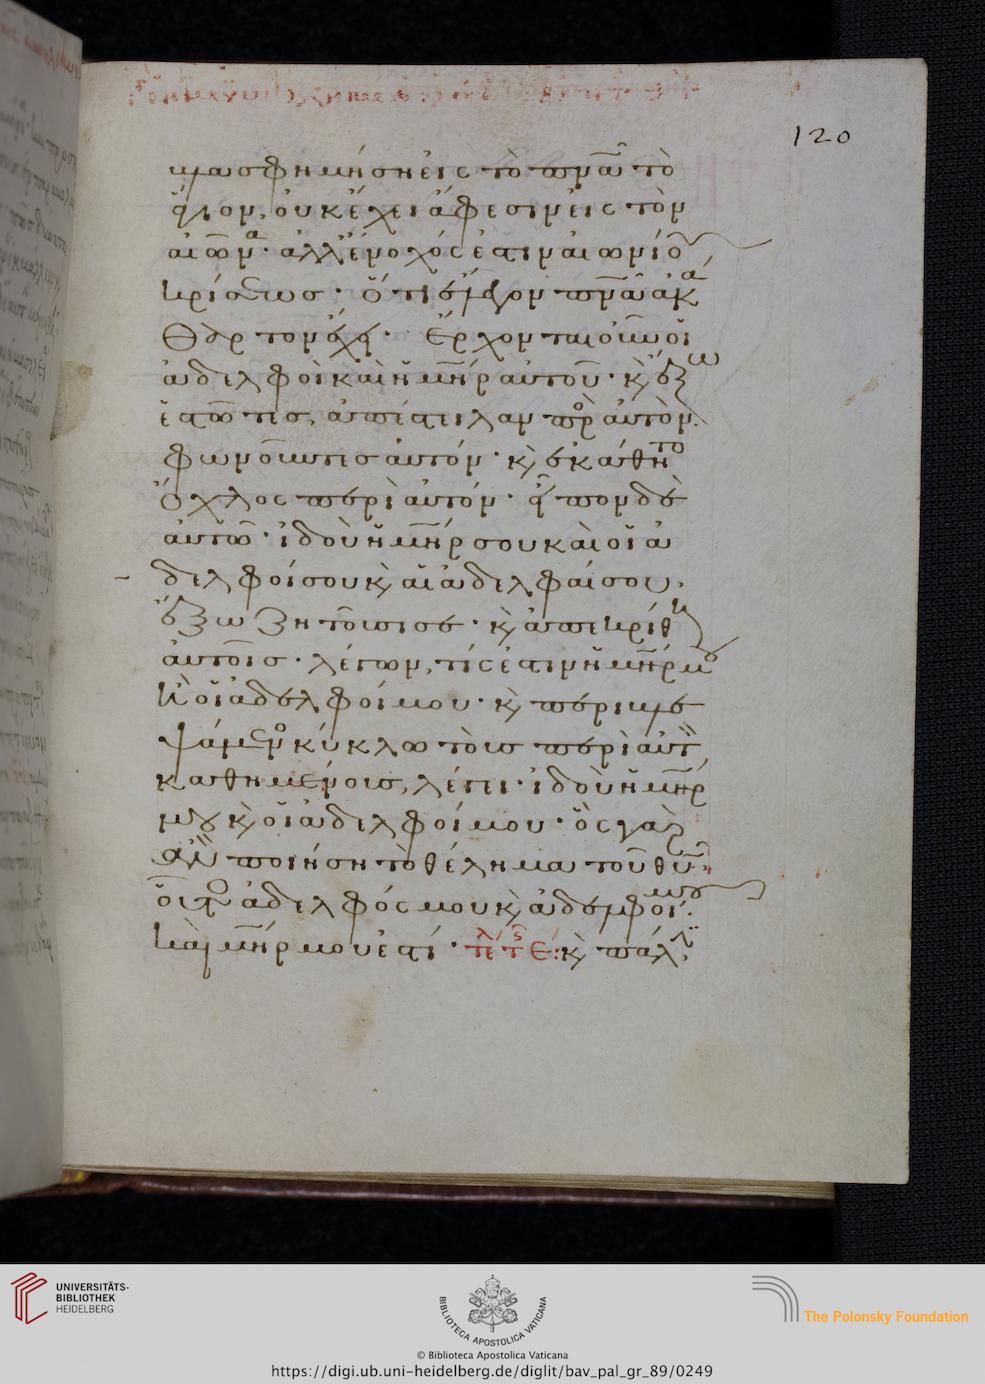 120
μασφημήσῃ εἰς τὸ πνᾶ τὸ
ἅγιον, οὐκ ἔχει ἄφεσιν εἰς τὸν
αἰῶνα· ἀλλ᾽ ἔνοχός ἐστιν αἰωνίου
κρίσεως· ὅτι ἔλεγον πνᾶ ἀκά
θαρτον ἔχει· Ἔρχονται οὖν οἱ
ἀδελφοὶ καὶ ἡ μηρ αὐτοῦ· κ̀ ἔξω
ἑστῶτες, ἀπέστειλαν πρὸς αὐτὸν
φωνοῦντες αὐτόν· κ̀ ἐκάθητο
ὄχλος περὶ αὐτόν· εἶπον δὲ
αὐτῶ· ἰδοὺ ἡ μηρ σου καὶ οἱ ἀ
δελφοί σου κ̀ αἱ ἀδελφαί σου,
ἔξω ζητοῦσι σε· κ̀ ἀπεκρίθη
αὐτοῖς· λέγων, τίς ἐστιν ἡ μηρ μου
ἢ οἱ ἀδελφοί μου· κ̀ περιβλε
ψάμενος κύκλω τοὺς περὶ αὐτὸν
καθημένους, λέγει· ἰδοὺ ἡ μηρ
μου κ̀ οἱ ἀδελφοί μου· ὃς γὰρ
ἂν ποιήση τὸ θέλημα τοῦ θυ,
οὗτος ἀδελφός μου κ̀ ἀδελφή μου
καὶ μηρ μου ἐστί· κ̀ πάλιν
UNIVERSITÄTS-
BIBLIOTHEK
HEIDELBERG
BIBLIOTECA APOSTOLICA VATICANA
The Polonsky Foundation
© Biblioteca Apostolica Vaticana
https://digi.ub.uni-heidelberg.de/diglit/bav_pal_gr_89/0249